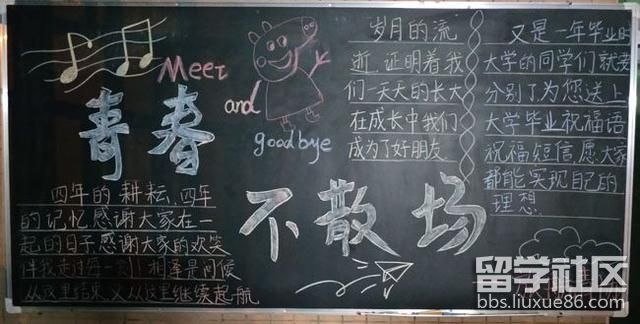 Meet
and
goodbye
青春
不散场
岁月的流
逝,证明着我
们一天天的长大
在成长中我们
成为了好朋友
又是一年毕业时
大学的同学们就要
分别了为您送上
大学毕业祝福语
祝福短信愿大家
都能实现自己的
理想
四年的耕耘,四年
的记忆感谢大家在一
起的日子感谢大家的欢笑
伴我走过每一刻!相逢是问候
从这里结束,又从这里继续起航
留学社区
bbs.liuxue86.com